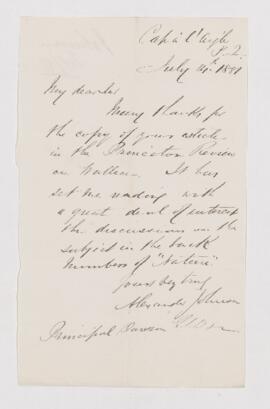 Cap à l'Aigle
P. Q.
July 21st 1881
My dear Sir
Many thanks for
the copy of your article
in the Princeton Review
on Wallace. It has
set me reading with
a great deal of interest
the discussions on the
subject in the back
numbers of "Nature".
yours very truly
Alexander Johnson
Principal Dawson